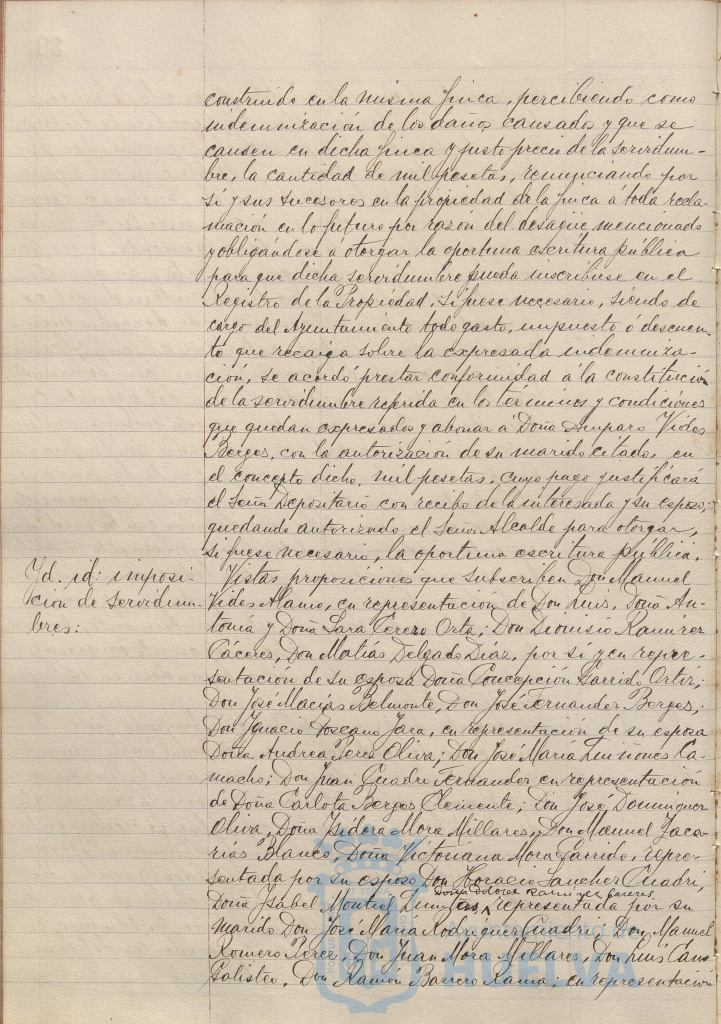 construido en la misma finca, percibiendo como
indemnización de los daños causados y que se
causen en dicha finca y justo precio de la servidum-
bre, la cantidad de mil pesetas, renunciando por
sí y sus sucesores en la propiedad de la finca á toda recla-
mación en lo futuro por razón del desagüe mencionado
y obligándose á otorgar la oportuna escritura pública
para que dicha servidumbre pueda inscribirse en el
Registro de la Propiedad, si fuese necesario, siendo de
cargo del Ayuntamiento todo gasto, impuesto ó descuen-
to que recaiga sobre la expresada indemniza-
ción, se acordó prestar conformidad á la constitución
de la servidumbre referida en los términos y condiciones
que quedan expresados y abonar á Doña Amparo Vides
Berges, con la autorización de su marido citado, en
el concepto dicho, mil pesetas, cuyo pago justificará
el Señor Depositario con recibo de la interesada y su esposo,
quedando autorizado el Señor Alcalde para otorgar,
si fuese necesario, la oportuna escritura pública.
Yd. id: imposi-
ción de servidum-
bres:
Vistas proposiciones que subscriben Don Manuel
Vides Mauro, en representación de Don Luis, Doña An-
tonia y Doña Sara Cerezo Orta; Don Dionisio Ramirez
Cáceres, Don Matías Delgado Díaz, por sí y en repre-
sentación de su esposa Doña Concepción Garrido Ortiz;
Don José Macías Belmonte, Don José Fernandez Berges;
Don Ygnacio Toscano Jara, en representación de su esposa
Doña Andrea Perez Oliva; Don José María Quiñones Ca-
macho; Don Juan Cuadri Fernandez en representación
de Doña Carlota Berges Clemente; Don José Dominguez
Oliva, Doña Ysidora Mora Millares, Don Manuel Zaca-
rías Blanco, Doña Victoriana Mora Garrido, repre-
sentada por su esposo Don Horacio Sanchez Cuadri,
Doña Dolores Ramirez
Doña Ysabel Montiel representada por su
marido Don José María Rodriguez Cuadri; Don Manuel
Romero Perez, Don Juan Mora Millares, Don Luis
Galisteo, Don Ramón Barrero Rama; en representación
HUELVA